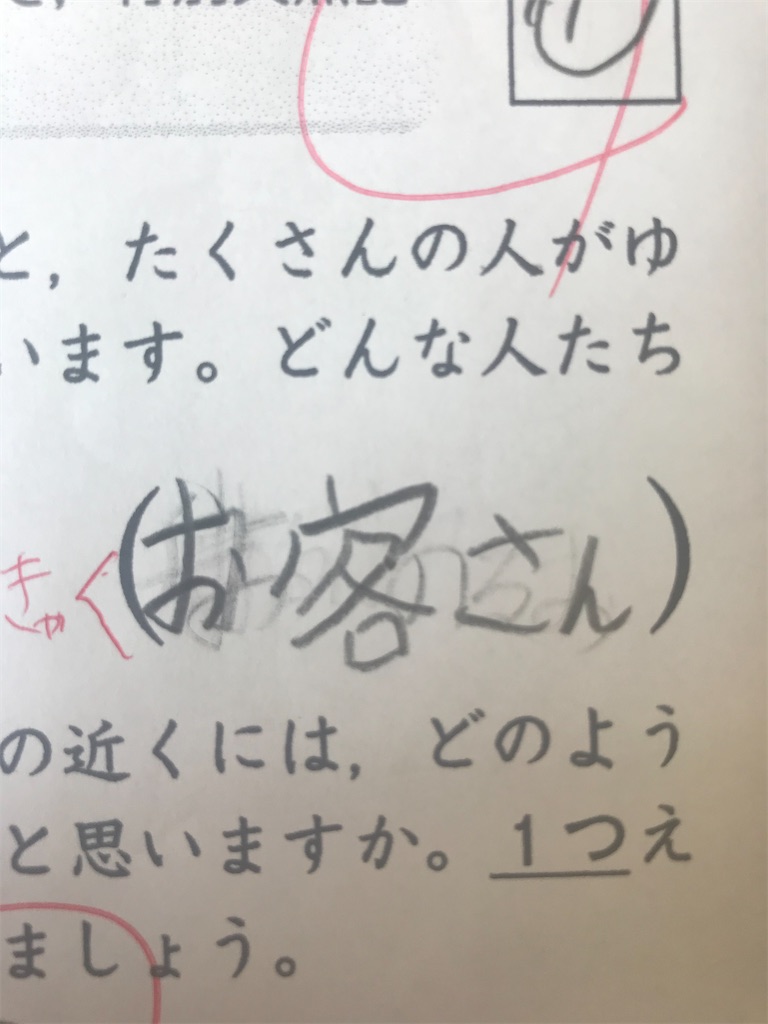 ①
と，たくさんの人がゆ
います。どんな人たち
(お客さん)
きゃく
の近くには，どのよう
と思いますか。１つえ
ましょう。